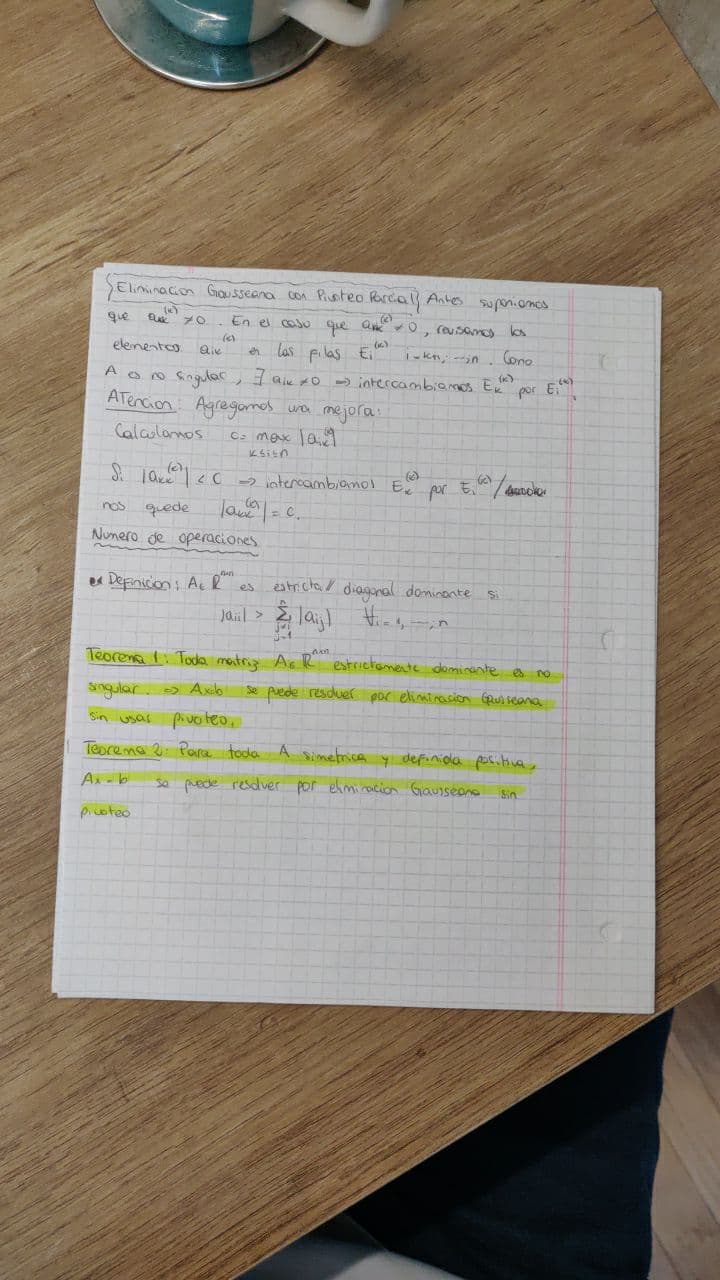 Eliminacion Gausseana con Pivoteo Parcial Antes suponiamos
que aₖₖ⁽ᵏ⁾ ≠0. En el caso que aₖₖ⁽ᵏ⁾ = 0, revisamos los
elementos aᵢₖ⁽ᵏ⁾ en las filas Eᵢ⁽ᵏ⁾ i=k+1, —, n. Como
A es no singular, ∃ aᵢₖ ≠0 ⇒ intercambiamos Eₖ⁽ᵏ⁾ por Eᵢ⁽ᵏ⁾.
ATencion: Agregamos una mejora:
Calculamos C= max |aᵢₖ⁽ᵏ⁾|
k≤i≤n
Si |aₖₖ⁽ᵏ⁾| < C ⇒ intercambiamos Eₖ⁽ᵏ⁾ por Eᵢ⁽ᵏ⁾/
nos quede |aₖₖ⁽ᵏ⁾| = C.
Numero de operaciones
Definicion: A∈ ℝⁿˣⁿ es estricta// diagonal dominante si
|aii| > Σ |aij| ∀i = 1, —, n
Teorema 1: Toda matriz A∈ ℝⁿˣⁿ estrictamente dominante es no
singular. ⇒ Ax=b se puede resolver por eliminacion Gausseana
sin usar pivoteo.
Teorema 2: Para toda A simetrica y definida positiva,
Ax=b se puede resolver por eliminacion Gausseana sin
pivoteo